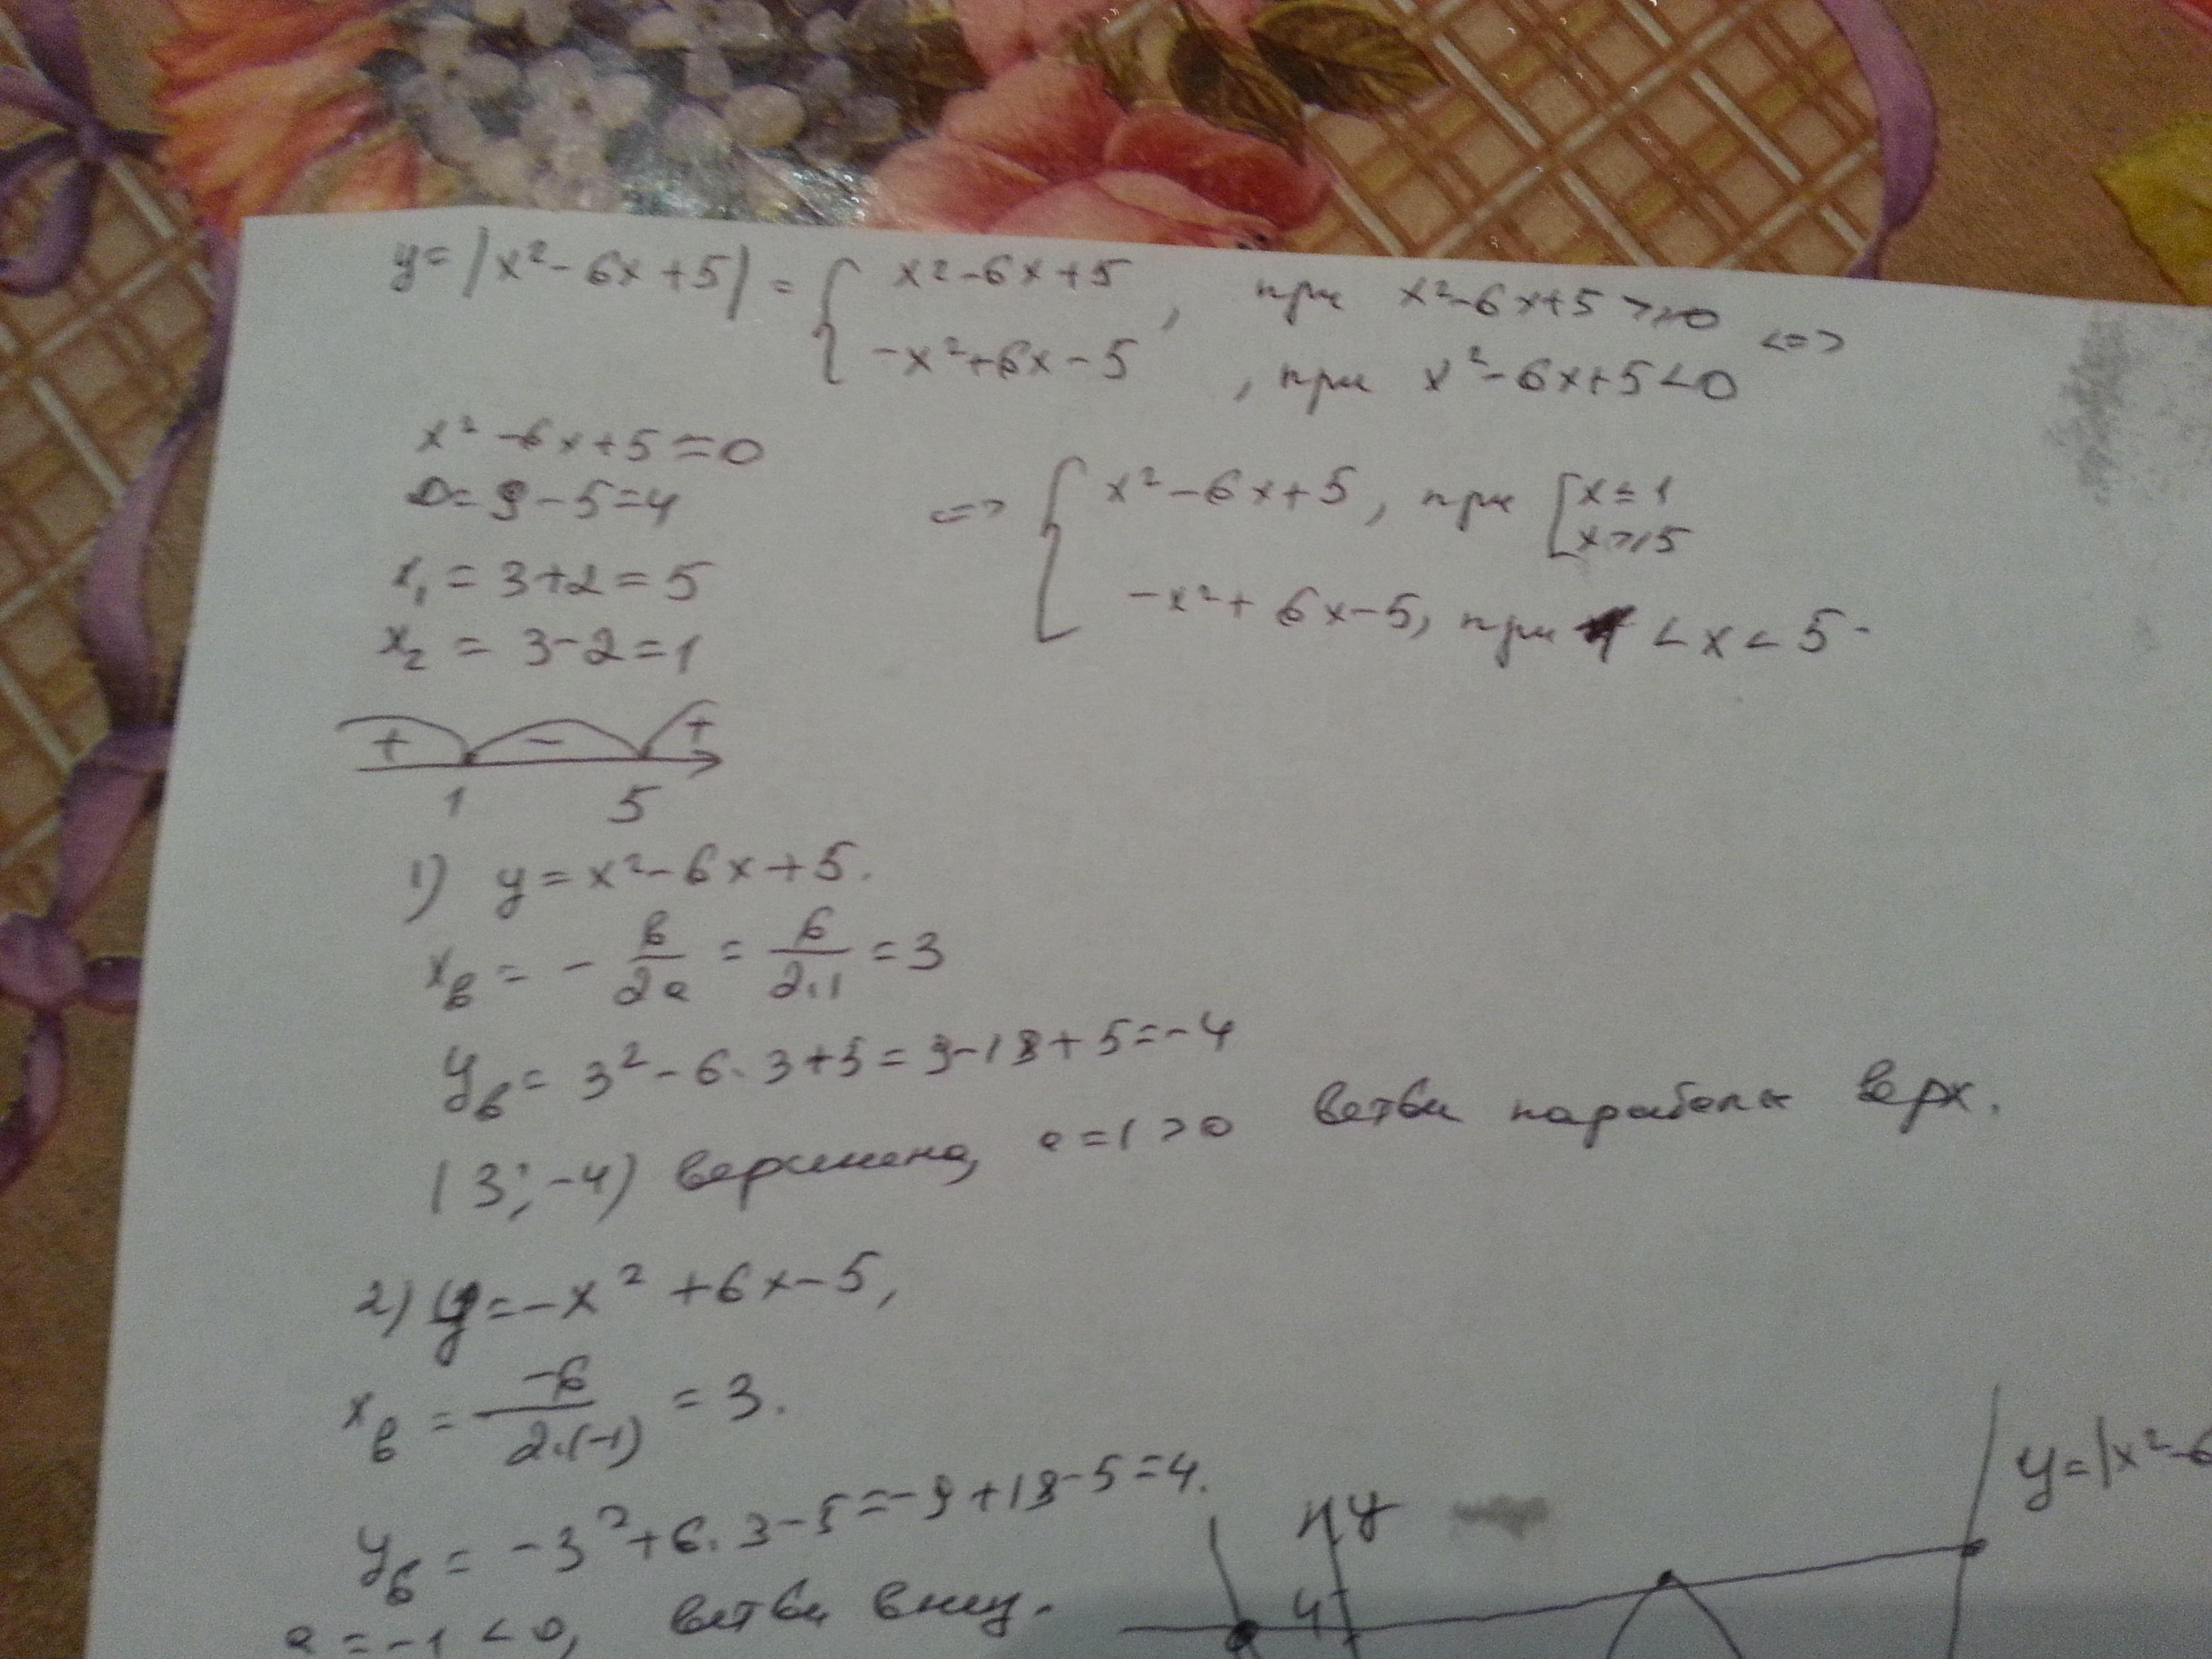 y=|x²-6x+5|= { x²-6x+5, при x²-6x+5≥0 <=>
-x²+6x-5, при x²-6x+5<0
x²-6x+5=0
D=9-5=4
<=> { x²-6x+5, при [ x≤1
x≥5
x₁=3+2=5
-x²+6x-5, при 1<x<5.
x₂=3-2=1
+ - +
1 5
1) y=x²-6x+5.
xв=-в/2a=6/2·1=3
yв=3²-6·3+5=9-18+5=-4
(3;-4) вершина, a=1>0 ветви параболы верх.
2) y=-x²+6x-5,
xв=-6/2·(-1)=3.
y=|x²-6
yв=-3²+6·3-5=-9+18-5=4.
y
4
a=-1<0, ветви вниз.